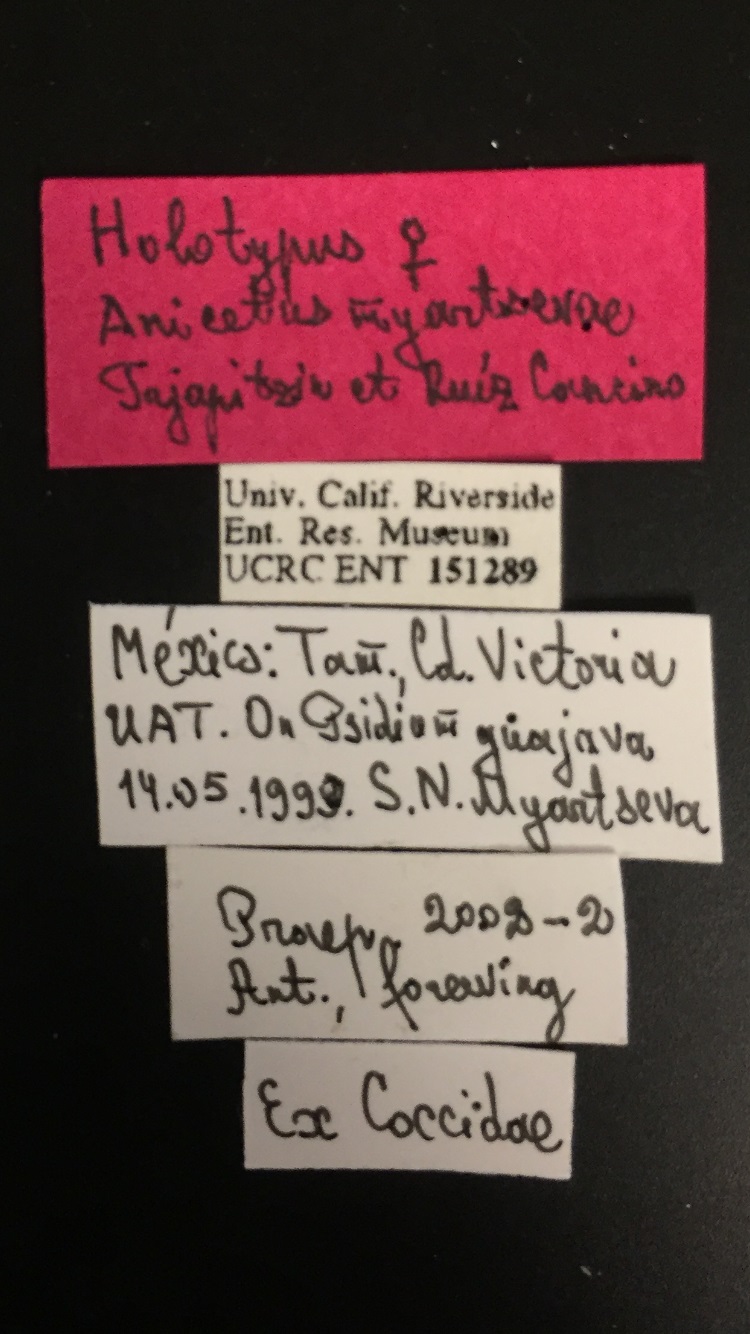 Holotypus ♀
Anicetus myartsevae
Trjapitzin et Ruíz Cancino
Univ. Calif. Riverside
Ent. Res. Museum
UCRC ENT 151289
México: Tam., Cd. Victoria
UAT. On Psidium guajava
14.05.1999. S.N. Myartseva
2002-2
Ant., forewing
Ex Coccidae